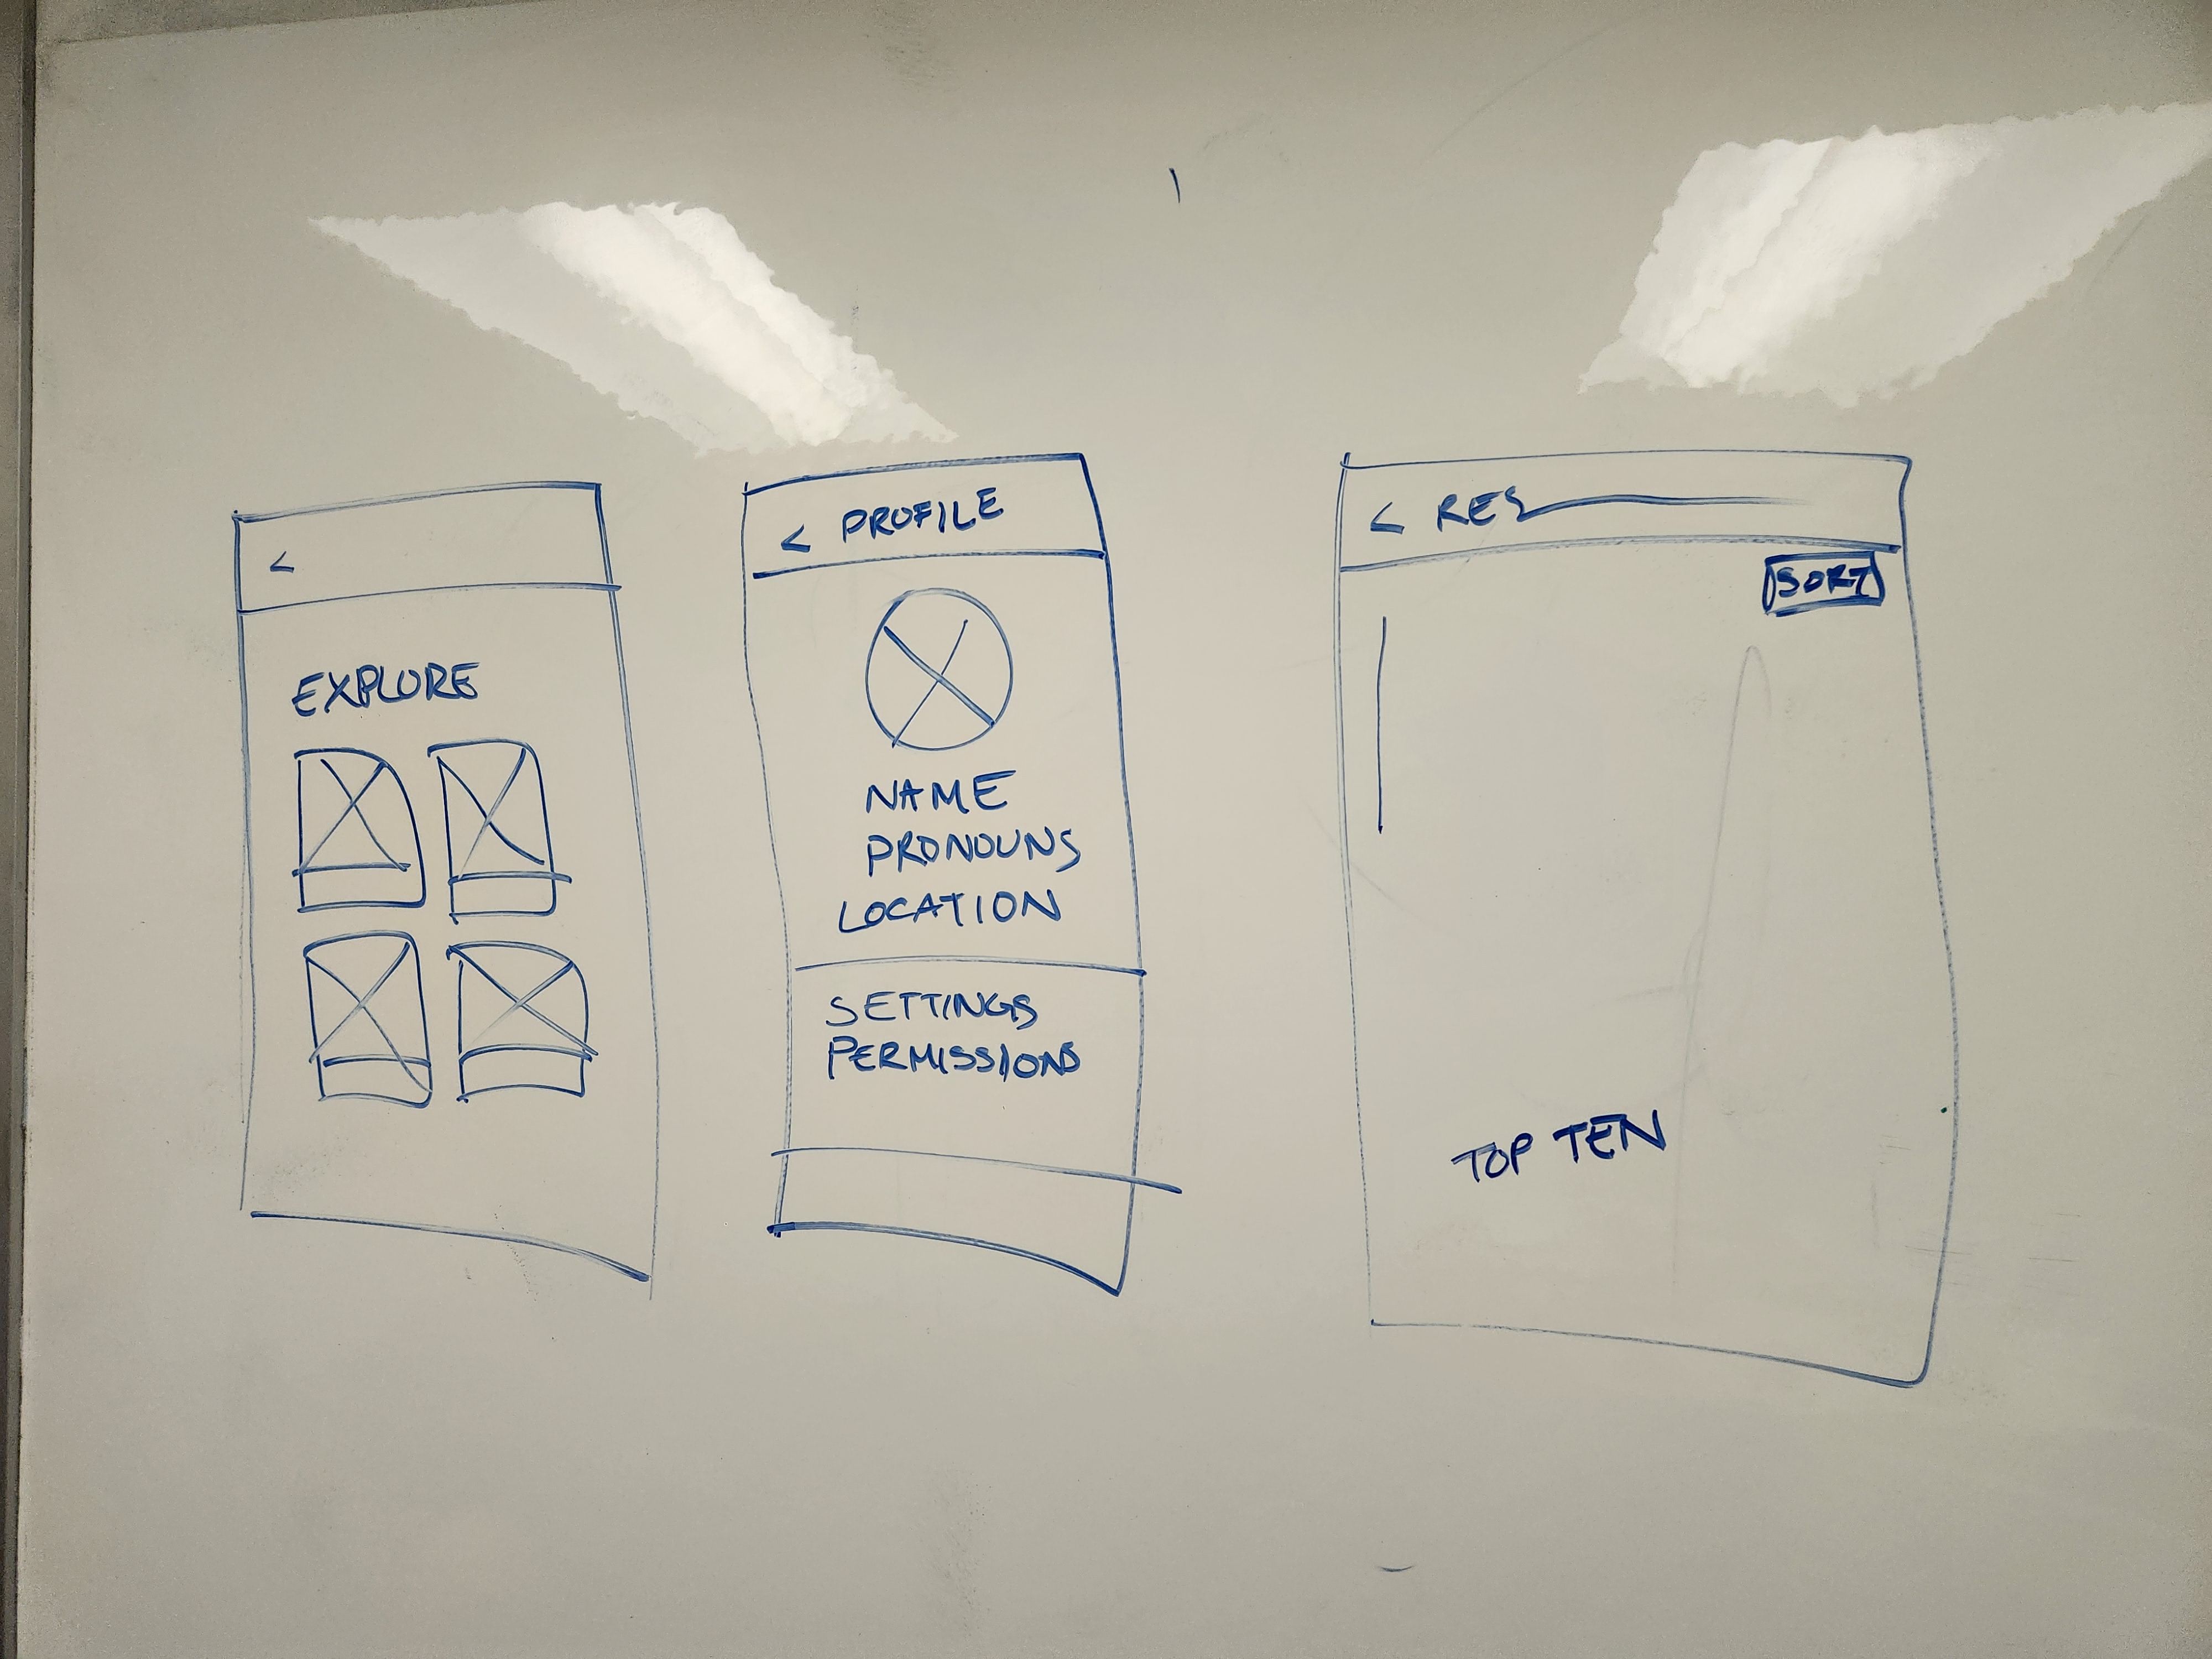 <
EXPLORE
< PROFILE
NAME
PRONOUNS
LOCATION
SETTINGS
PERMISSIONS
< RES
SORT
TOP TEN